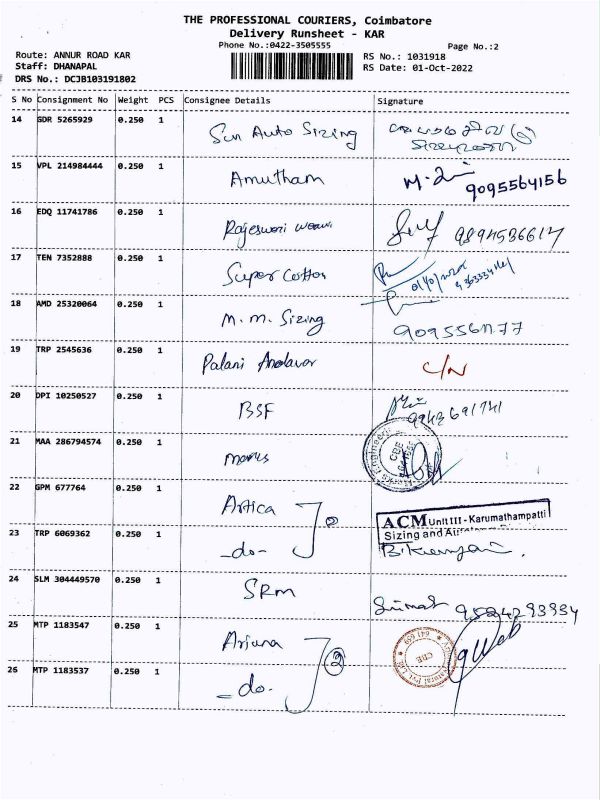 THE PROFESSIONAL COURIERS, Coimbatore
Delivery Runsheet - KAR
Phone No.:0422-3505555
Page No.:2
Route: ANNUR ROAD KAR
Staff: DHANAPAL
DRS No.: DCJB103191802
RS No.: 1031918
RS Date: 01-Oct-2022
S No Consignment No Weight PCS Consignee Details Signature
14 GDR 5265929 0.250 1 Sun Auto Sizing
15 VPL 214984444 0.250 1 Amutham 9095564156
16 EDQ 11741786 0.250 1 Rajeswari
17 TEN 7352888 0.250 1 Super Cotton
18 AMD 25320064 0.250 1 M.M. Sizing
19 TRP 2545636 0.250 1 Palani Andavar C/N
20 DPI 10250527 0.250 1 BSF
21 MAA 286794574 0.250 1 CBE
22 GPM 677764 0.250 1 Artica 2
ACM Unit III - Karumathampatti
Sizing and
23 TRP 6069362 0.250 1 -do-
24 SLM 304449570 0.250 1 SRM
25 MTP 1183547 0.250 1 Arjuna 2 641 659 CBE
26 MTP 1183537 0.250 1 -do-